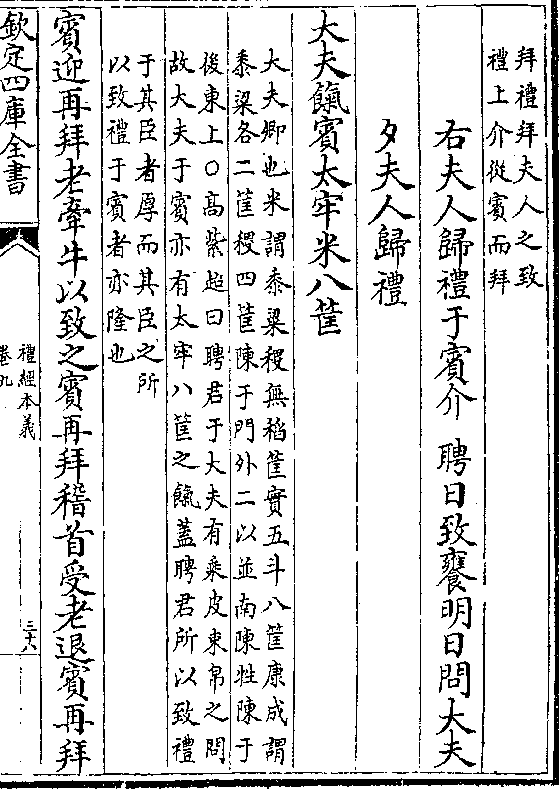 拜禮拜夫人之致
禮上介從賓而拜
右夫人歸禮于賓介　聘日致饔明日問大夫
夕夫人歸禮
大夫餼賓太牢米八筐
大夫卿也米謂黍粱稷無稻筐實五斗八筐康成謂
黍粱各二筐稷四筐陳于門外二以並南陳牲陳于
後東上○高紫超曰聘君于大夫有乘皮束帛之問
故大夫于賓亦有太牢八筐之餼蓋聘君所以致禮
于其臣者厚而其臣之所
以致禮于賓者亦隆也
賓迎再拜老牽牛以致之賓再拜稽首受老退賓再拜
欽定四庫全書
禮經本義
卷九
三十八